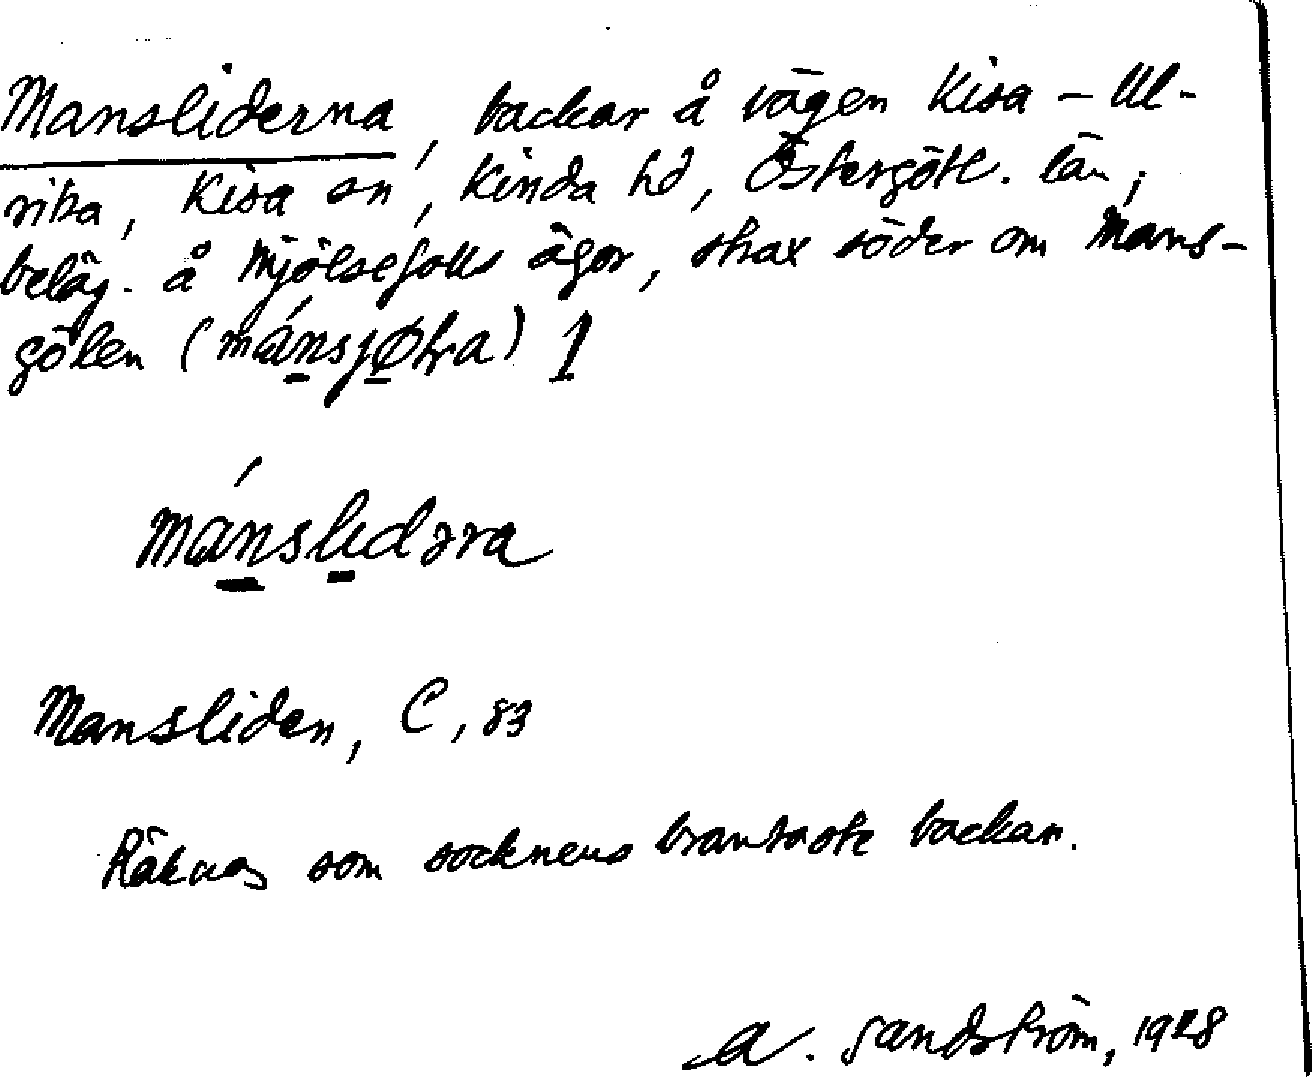 Mansliderna, backar å vägen Kisa – Ul-
rika, Kisa sn, Kinda hd, Östergötl. län;
beläg. å Mjölsefalls ägor, strax söder om Mans-
gölen () 1
mánslıdəra
Mansliden, C, 83
Räknas som socknens brantaste backan.
A. Sandström, 1928